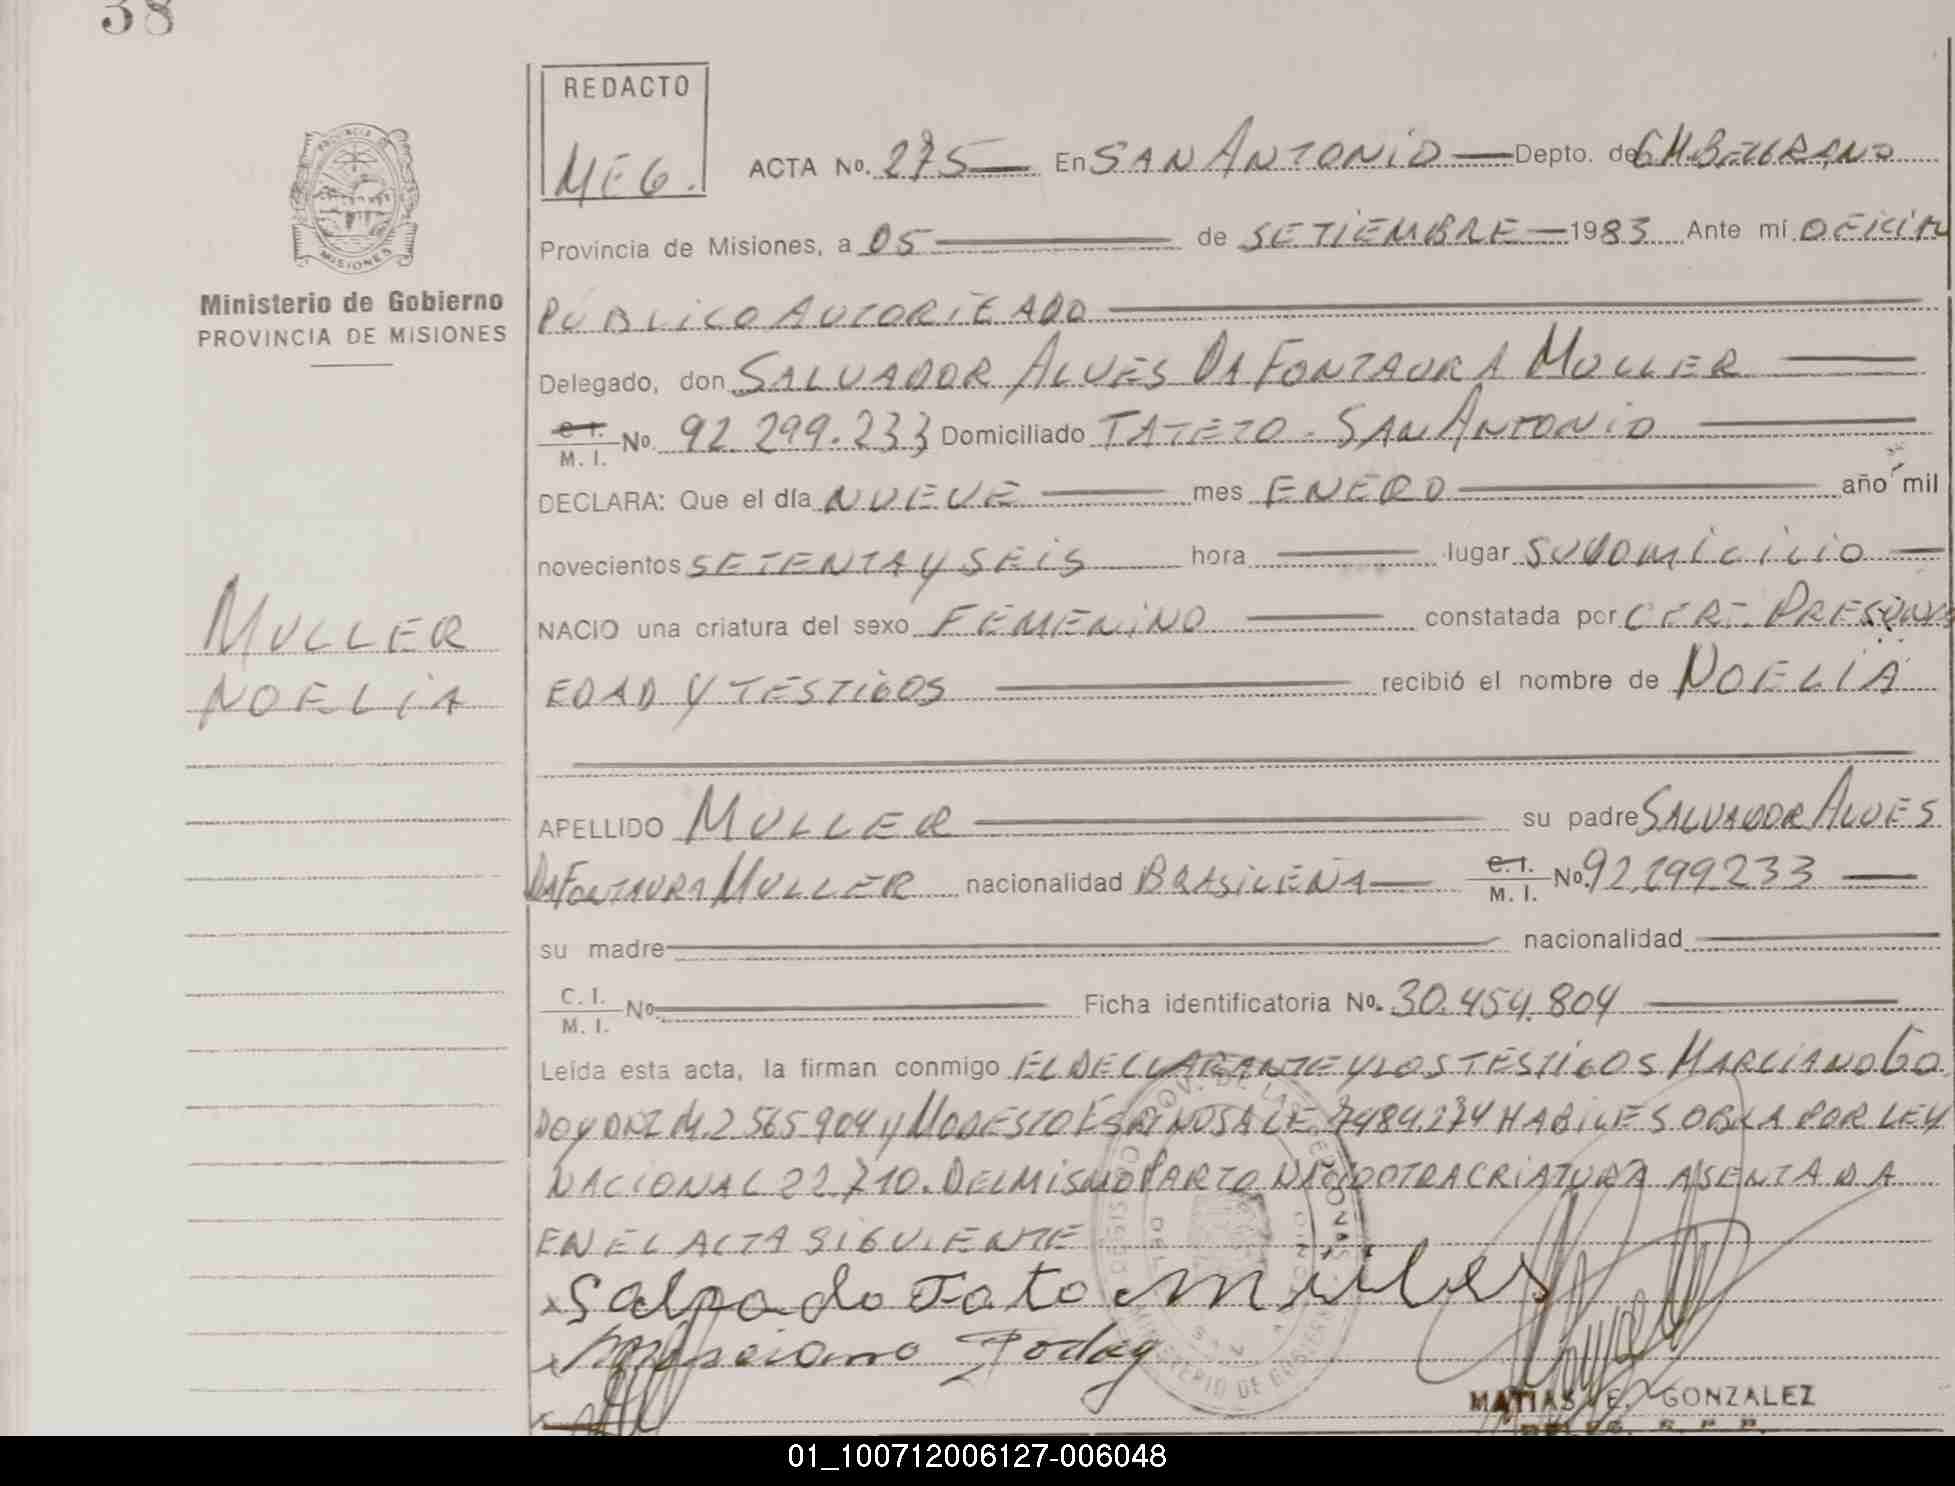 38
REDACTO
MEG.
ACTA No. 275 En SAN ANTONIO Depto. de G M. BELGRANO
Provincia de Misiones, a 05 de SETIEMBRE 1983 Ante mí OFICIAL
PUBLICO AUTORIZADO
PROVINCIA DE MISIONES
Ministerio de Gobierno
PROVINCIA DE MISIONES
Delegado, don SALVADOR ALVES DA FONTAURA MULLER
C. I. M. I. No. 92.299.233 Domiciliado TATETO - SAN ANTONIO
DECLARA: Que el día NUEVE mes ENERO año mil
novecientos SETENTA Y SEIS hora lugar SU DOMICILIO
NACIO una criatura del sexo FEMENINO constatada por CERT. PRESUNTA
EDAD Y TESTIGOS recibió el nombre de NOELIA
MULLER
NOELIA
APELLIDO MULLER su padre SALVADOR ALVES
DA FONTAURA MULLER nacionalidad BRASILEÑA C. I. M. I. No. 92.299.233
su madre nacionalidad
C. I. M. I. No Ficha identificatoria No. 30.454.804
Leída esta acta, la firman conmigo EL DECLARANTE Y LOS TESTIGOS MARCIANO GO
DOY DNI M. 2 565 904 y MODESTO ESPINOSA LE 7484.274 HABILES OBLA POR LEY
NACIONAL 22.710. DEL MISMO PARTO NACIO OTRA CRIATURA ASENTADA
EN EL ACTA SIGUIENTE
x Salvado Tato Muler
x Marciano Godoy
MATIAS E. GONZALEZ
01_100712006127-006048